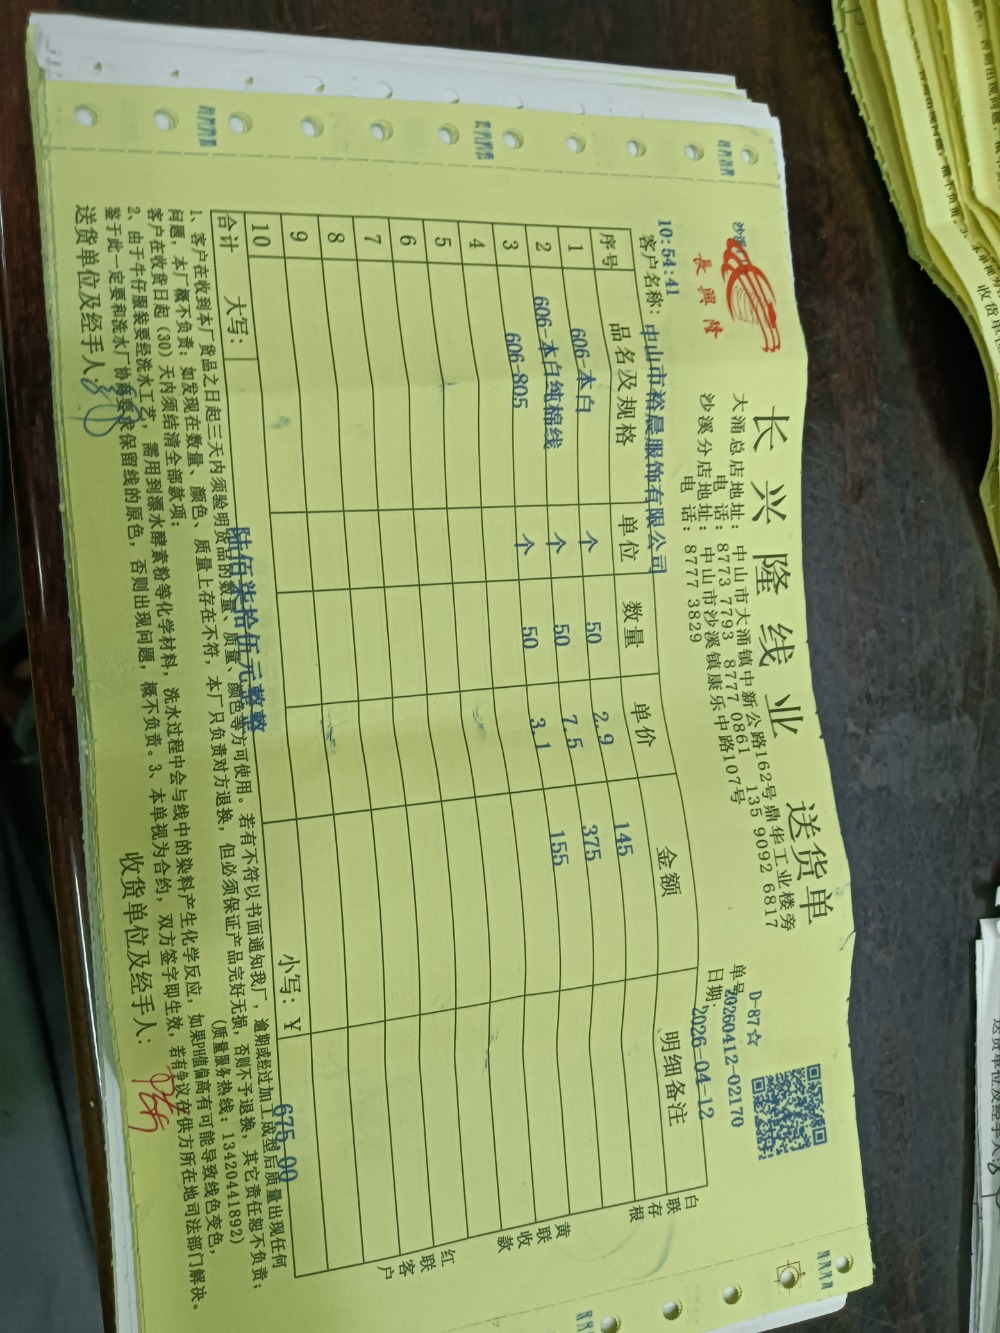 長興隆
长兴隆线业 送货单
大涌总店地址：中山市大涌镇中新公路162号鼎华工业楼旁
电话：8773 7793 8777 0861 135 9092 6817
沙溪分店地址：中山市沙溪镇康乐中路107号
电话：8777 3829
D-87☆
单号 20260412-02170
日期：2026-04-12
10:54:41
客户名称：中山市裕晨服饰有限公司
序号 品名及规格 单位 数量 单价 金额 明细备注
1 606-本白 个 50 2.9 145
2 606-本白纯棉线 个 50 7.5 375
3 606-805 个 50 3.1 155
4
5
6
7
8
9
10
合计 大写：陆佰柒拾伍元整整 小写：￥675.00
白联存根
黄联收款
红联客户
1、客户在收到本厂货品之日起三天内须验明货品的数量、质量、颜色等方可使用。若有不符以书面通知我厂，逾期或经过加工成型后质量出现任何
问题，本厂概不负责；如发现在数量、颜色、质量上存在不符，本厂只负责对方退换，但必须保证产品完好无损，否则不予退换，其它责任恕不负责；
客户在收货日起（30）天内须结清全部款项；（质量服务热线：13420441892）
2、由于牛仔服装要经洗水工艺，需用到漂水酵素粉等化学材料，洗水过程中会与线中的染料产生化学反应，如果PH值偏高有可能导致线色变色，
鉴于此一定要和洗水厂协商要求保留线的原色，否则出现问题，概不负责。3、本单视为合约，双方签字即生效，若有争议在供方所在地司法部门解决。
送货单位及经手人： 收货单位及经手人：